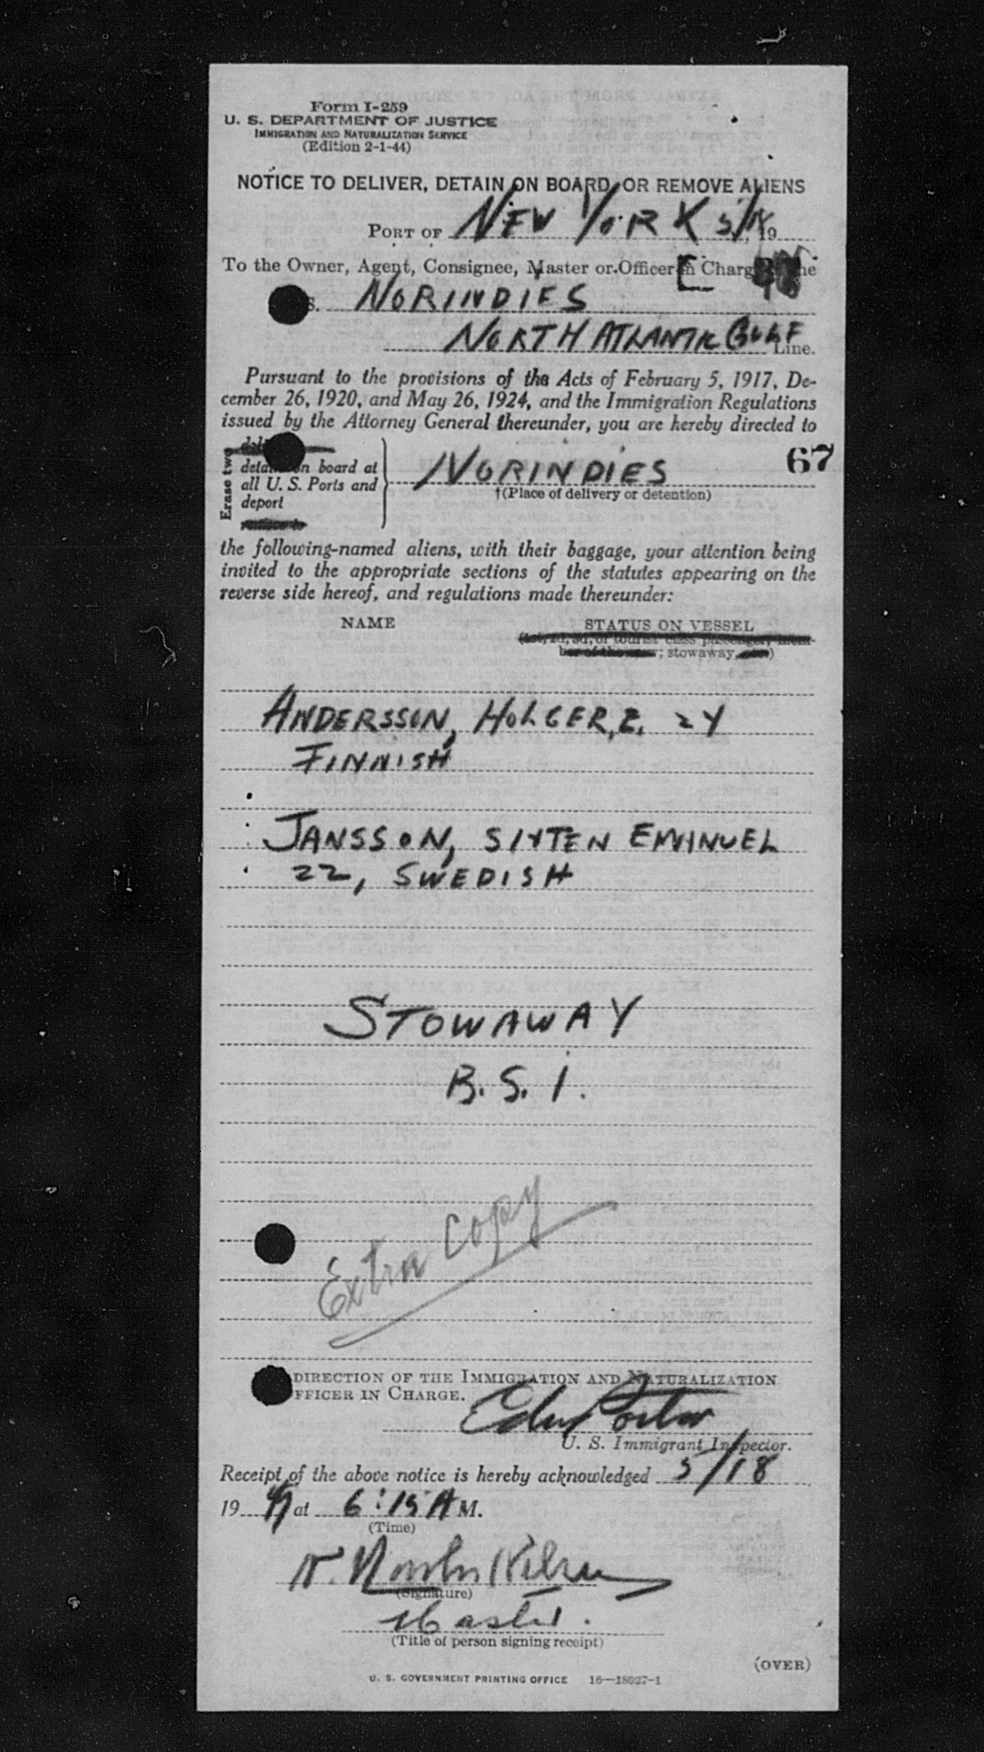 Form I-259
U. S. DEPARTMENT OF JUSTICE
IMMIGRATION AND NATURALIZATION SERVICE
(Edition 2-1-44)
NOTICE TO DELIVER, DETAIN ON BOARD, OR REMOVE ALIENS
PORT OF NEW YORK 5/18, 19
To the Owner, Agent, Consignee, Master or Officer in Charge of the
S. NORINDIES
NORTH ATLANTIC GULF Line.
Pursuant to the provisions of the Acts of February 5, 1917, De-
cember 26, 1920, and May 26, 1924, and the Immigration Regulations
issued by the Attorney General thereunder, you are hereby directed to
Erase two
detain on board at
all U. S. Ports and
deport
NORINDIES 67
†(Place of delivery or detention)
the following-named aliens, with their baggage, your attention being
invited to the appropriate sections of the statutes appearing on the
reverse side hereof, and regulations made thereunder:
NAME STATUS ON VESSEL
; stowaway )
ANDERSSON, HOLGER, E. 24
FINNISH
JANSSON, SIXTEN EMANUEL
22, SWEDISH
STOWAWAY
B. S. I.
Extra Copy
DIRECTION OF THE IMMIGRATION AND NATURALIZATION
OFFICER IN CHARGE.
U. S. Immigrant Inspector.
Receipt of the above notice is hereby acknowledged 5/18
19 47 at 6:15 A M.
(Time)
(Signature)
Master.
(Title of person signing receipt)
(OVER)
U. S. GOVERNMENT PRINTING OFFICE 16—18027-1